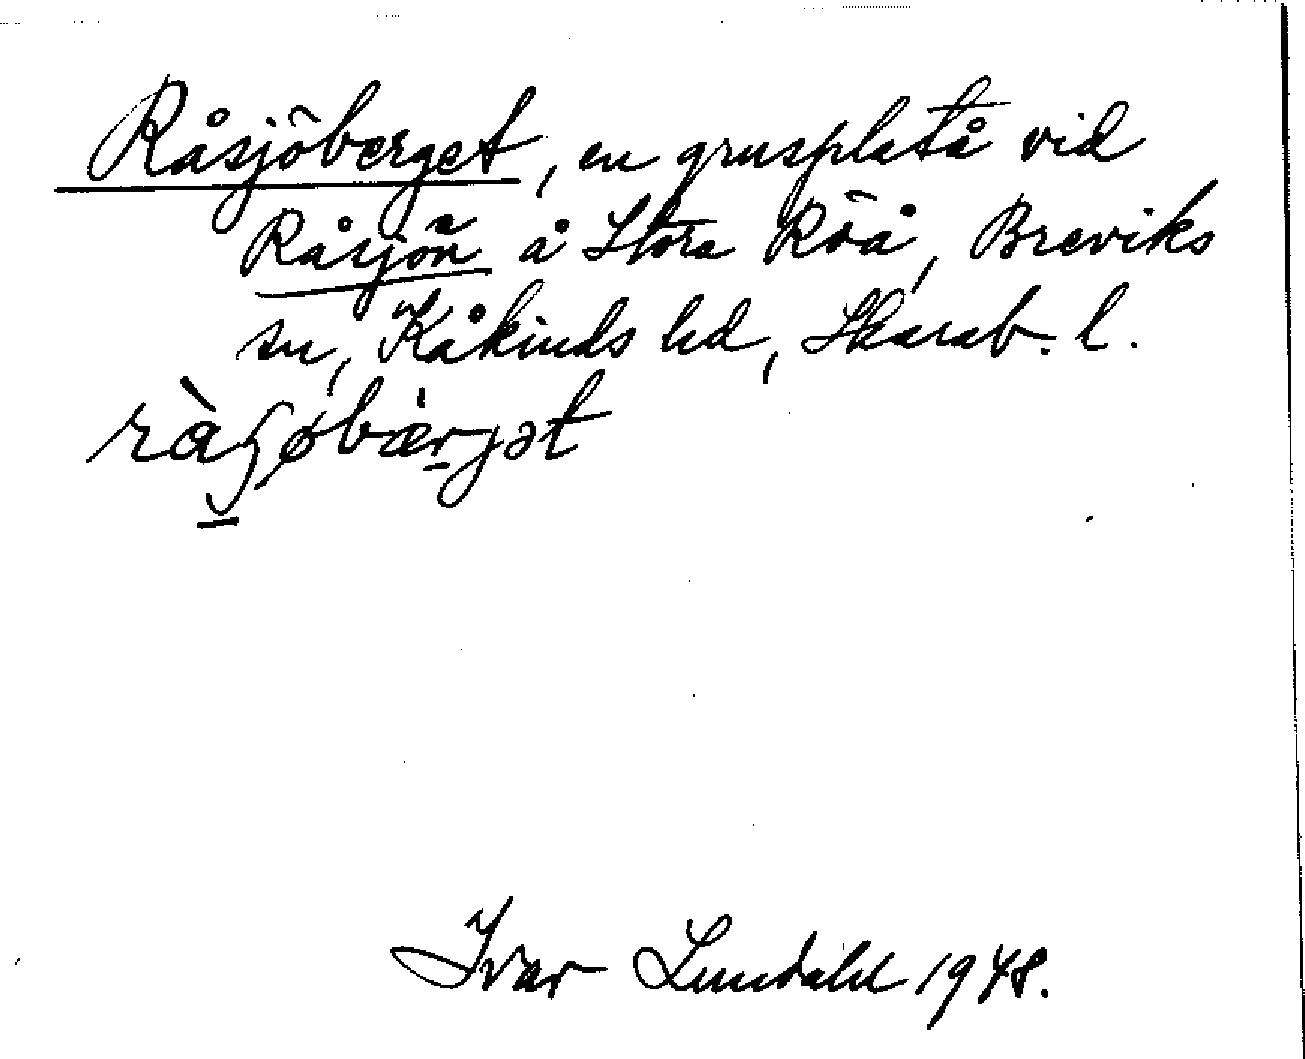 Råsjöberget, en grusplatå vid
Råsjön å Stora Röå, Breviks
sn, Kåkinds hd, Skarab. l.
Ivar Lundahl 1948.